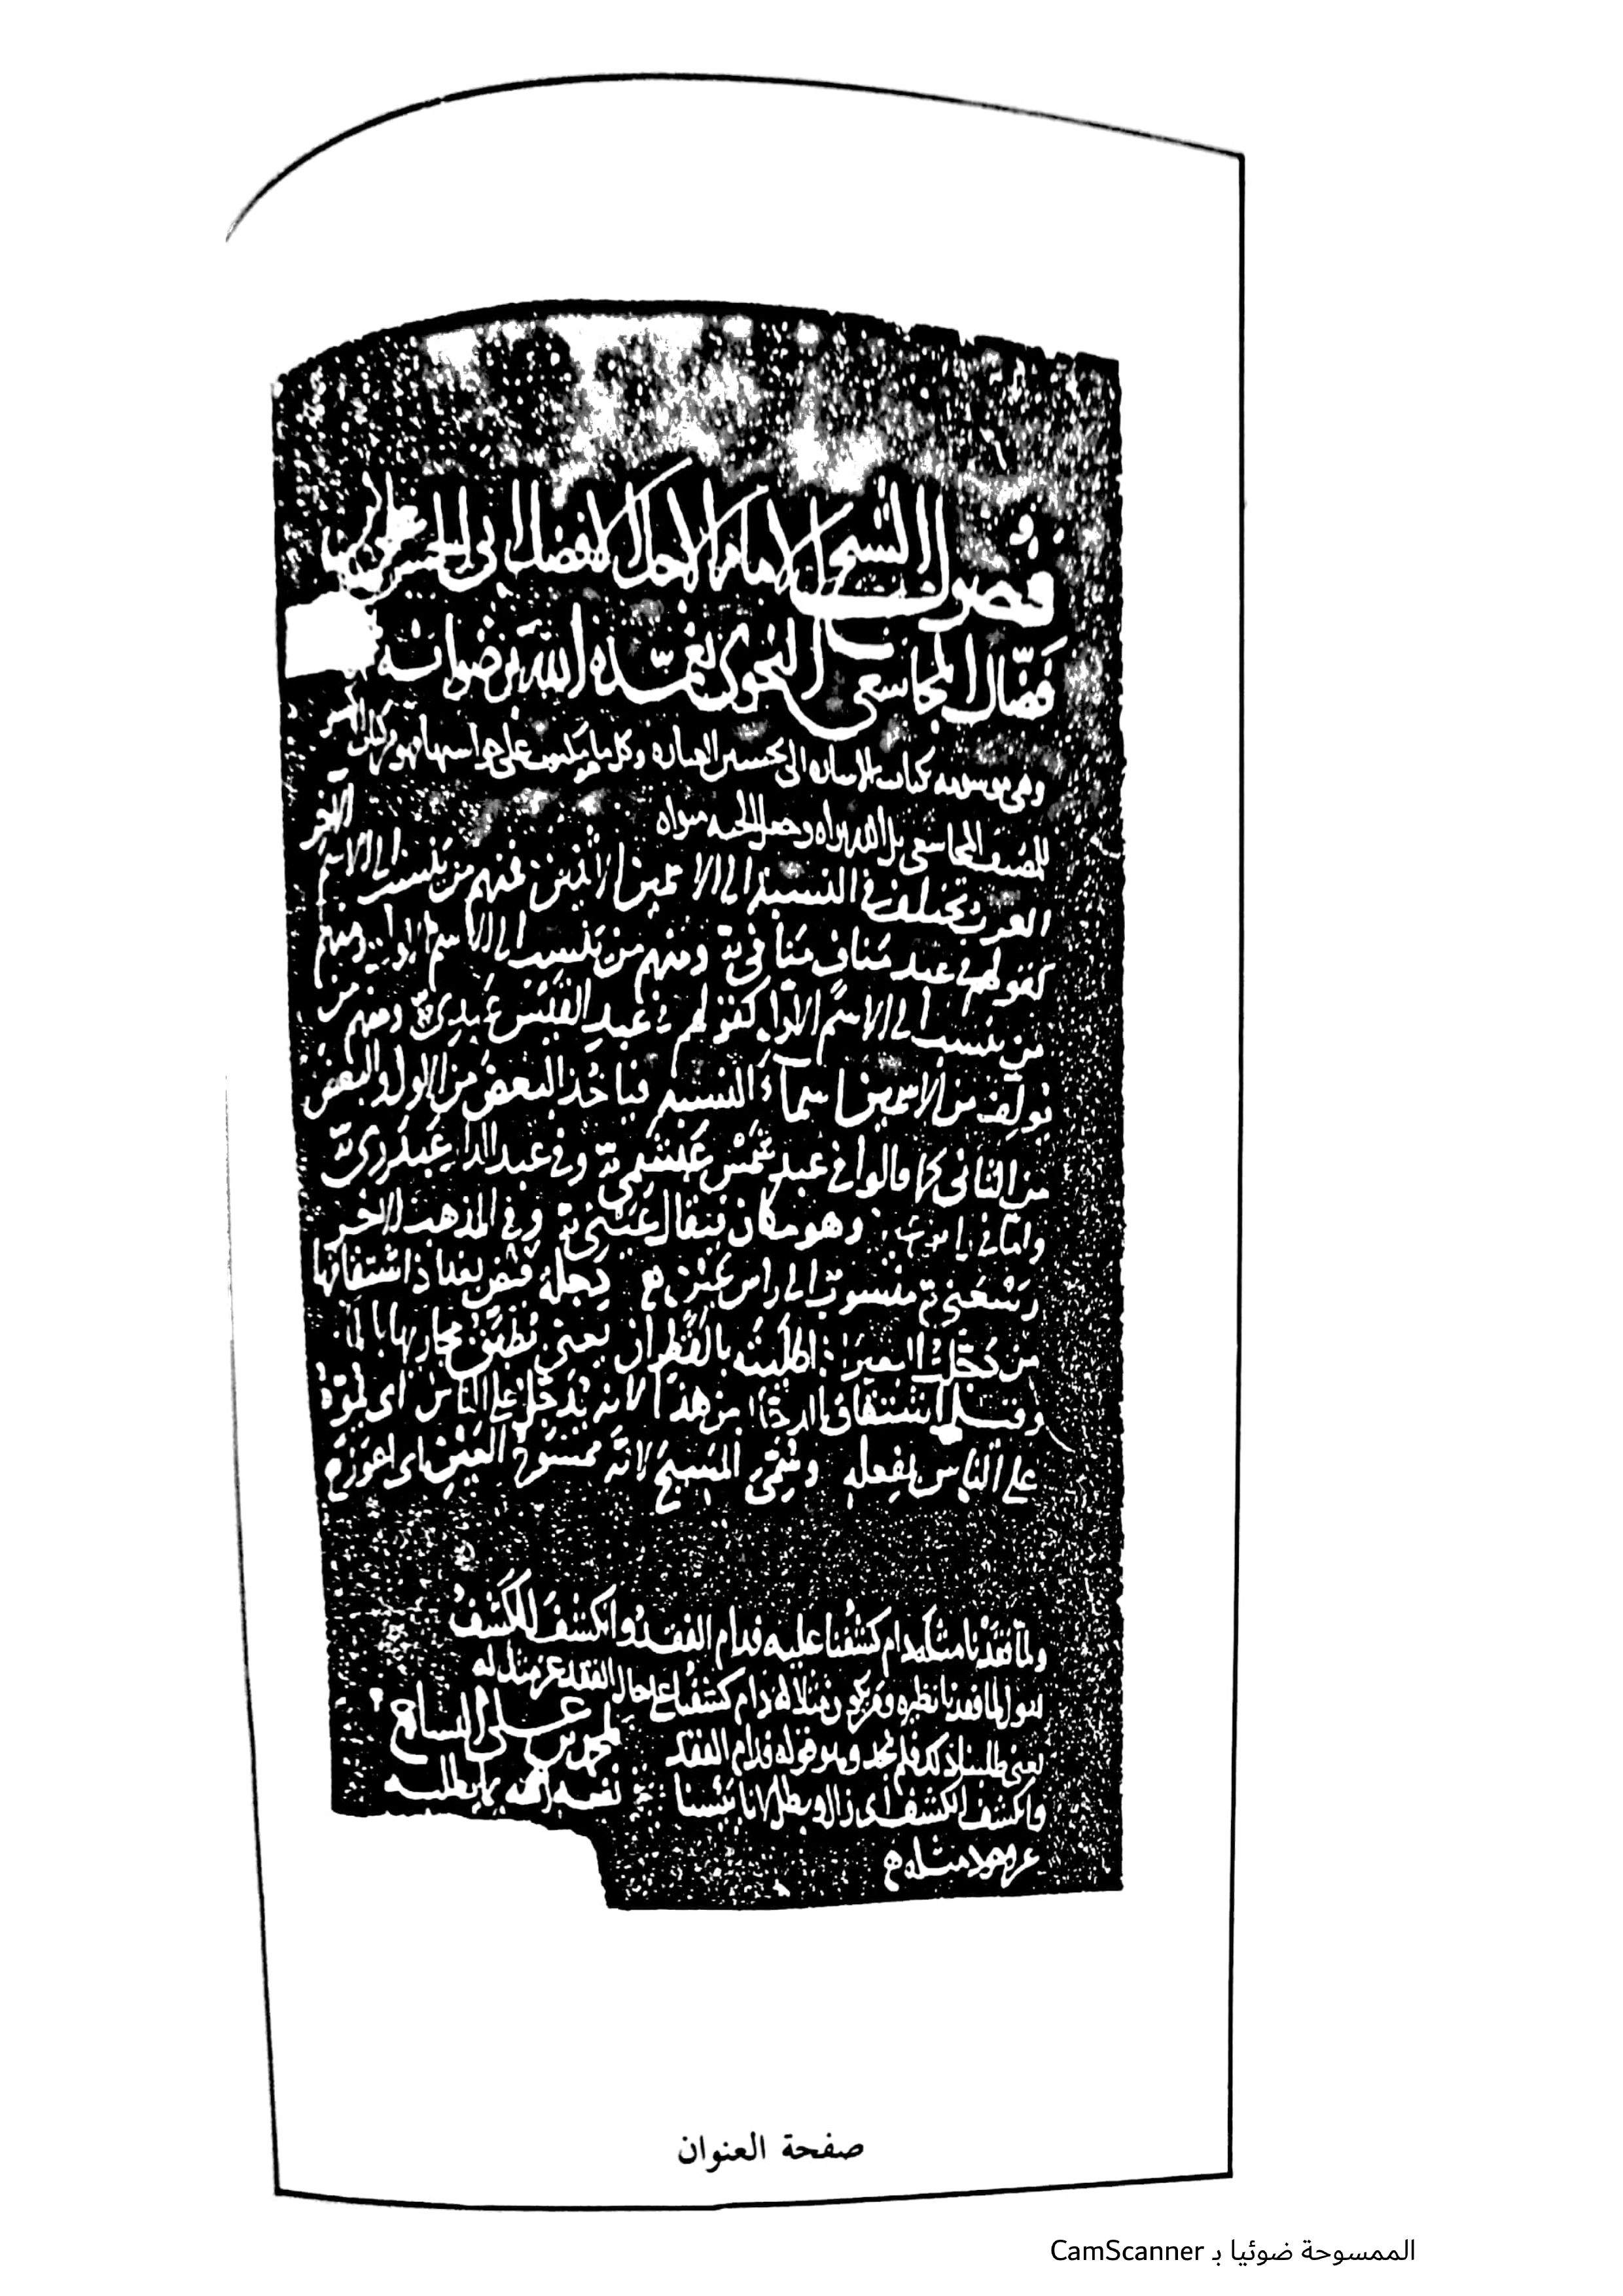 فصول الشيخ الامام الاجل الافضل ابى الحسن على بن
فضّال المجاشعى النحوى تغمّده الله برضوانه
وهى موسومه كتاب الاساره الى تحسين العباره وكل ما يكتب على حواسيها فهو
للمصنف المجاسعى بل الله ثراه وجعل الجنه مثواه
العرب تختلف فى النسبة الى الاسمين الاثنين فمنهم من ينسب الى الاسم الآخر
كقولهم فى عبد مناف منافىّ ومنهم من ينسب الى الاسم الاول ومنهم
من ينسب الى الاسم الاول كقولهم فى عبد القيس عبدىّ ومنهم من
يولف من الاسمين اسماً للنسبة فياخذ البعض من الاول والبعض
من الثانى كما قالوا فى عبد شمس عبشمىّ وفى عبد الدار عبدرىّ
واما فى وهو مكان فيقال عينىّ وفى المذهب الاخر
رسعنىّ منسوب الى راس عين دجلة فيض بغداذ اشتقاقها
من دجّلت البعير اذا طليته بالقطران يعنى تطبق مجاريها بالماء
وقيل اشتقاق الدجّال من هذا لانه يدجل على الناس اى يموّه
على الناس بفعله وسُمّى المسيح لانه ممسوح العين اى اعور
ولما فقدنا مثله دام كشفنا عليه فدام الفقد وانكشف الكشف
يقول لما فقدنا نظيره دام كشفنا على حال الفقد عن مثل له
يعنى طلبنا ذلك فلم نجد وهو قوله فدام الفقد
وانكشف الكشف اى زال وبطل لانا يئسنا
عن وجود مثله
لمحمد بن على
نفعه الله بما يطلبه
صفحة العنوان
الممسوحة ضوئيا بـ CamScanner